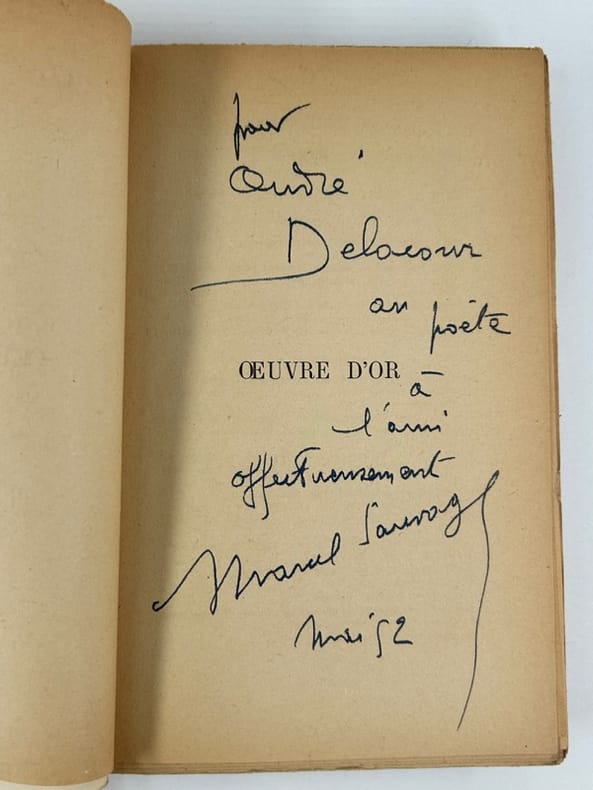 pour
André
Delacour
au
poète
ŒUVRE D'OR
à
l'ami
affectueusement
Marcel Sauvage
Mai 52